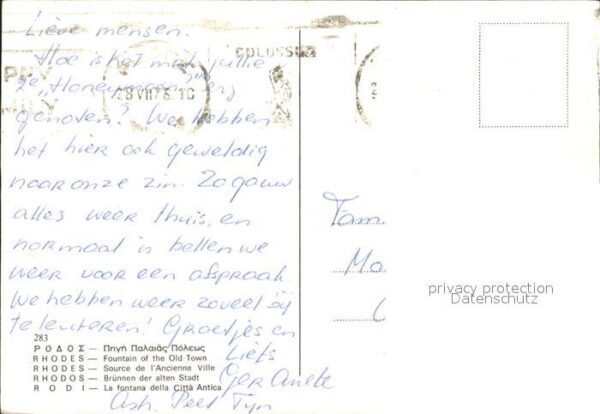 Lieve mensen.
Hoe is het met jullie
2e „Honeymoon" erg
genoten? We hebben
het hier ook geweldig
naar onze zin. Zo gauw
alles weer thuis, en
normaal is bellen we
weer voor een afspraak
We hebben weer zoveel bij
te leuteren! Groetjes en
Liefs
Ger
COLOSSUS
Fam.
Mo
privacy protection
Datenschutz
283
ΡΟΔΟΣ — Πηγή Παλαιᾶς Πόλεως
RHODES — Fountain of the Old Town
RHODES — Source de l'Ancienne Ville
RHODOS — Brünnen der alten Stadt
RODI — La fontana della Città Antica